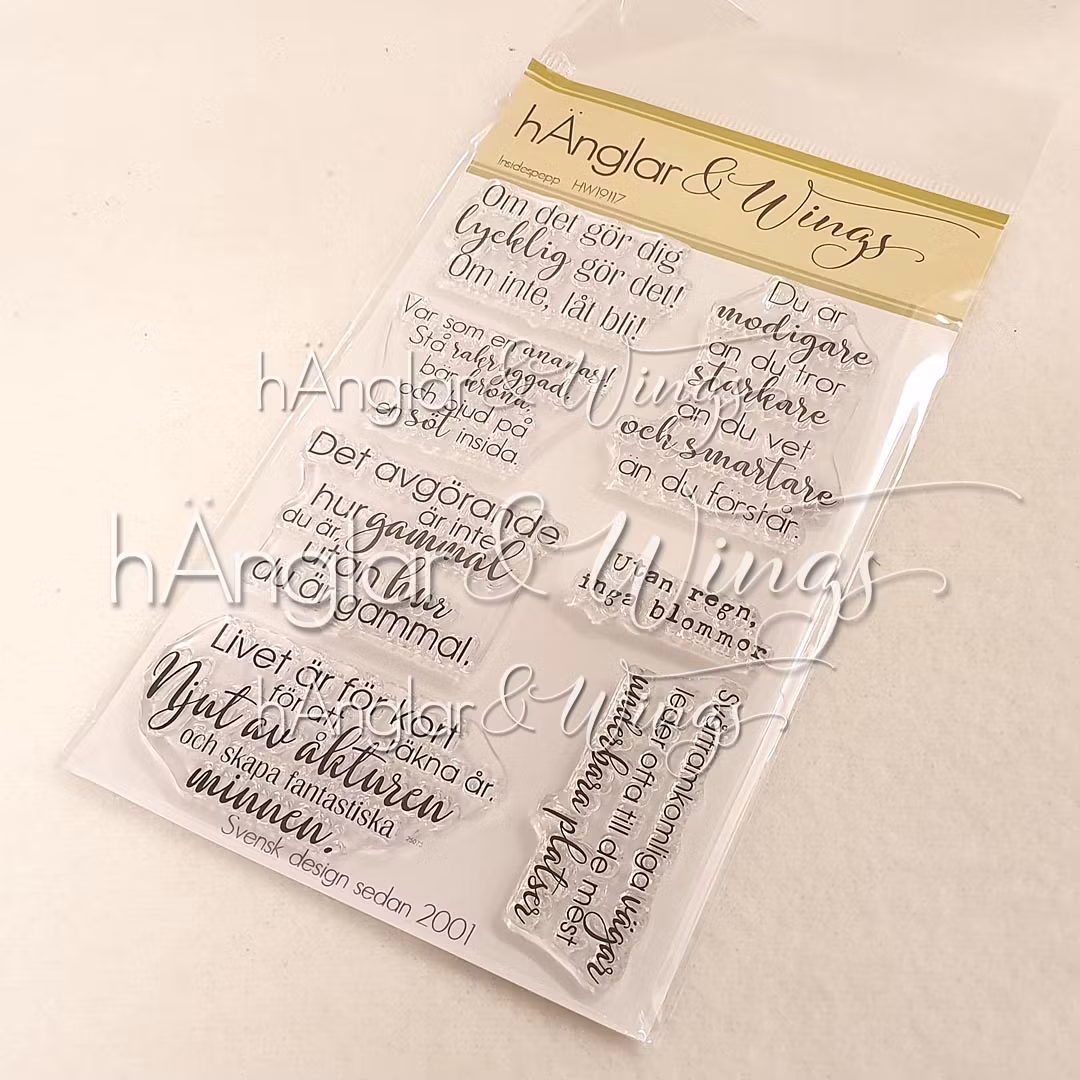 hÄnglar & Wings
Insidespepp HW19117
Om det gör dig
lycklig gör det!
Om inte, låt bli!
Du är
modigare
än du tror
starkare
än du vet
och smartare
än du förstår.
Var som en ananas!
Stå rakryggad,
bär krona,
och bjud på
en söt insida.
hÄnglar & Wings
Det avgörande
är inte
hur gammal
du är,
utan hur
du är gammal.
hÄnglar & Wings
Utan regn,
inga blommor
Livet är för kort
för att räkna år.
Njut av åkturen
och skapa fantastiska
minnen.
hÄnglar & Wings
Svårframkomliga vägar
leder ofta till de mest
underbara platser
Svensk design sedan 2001